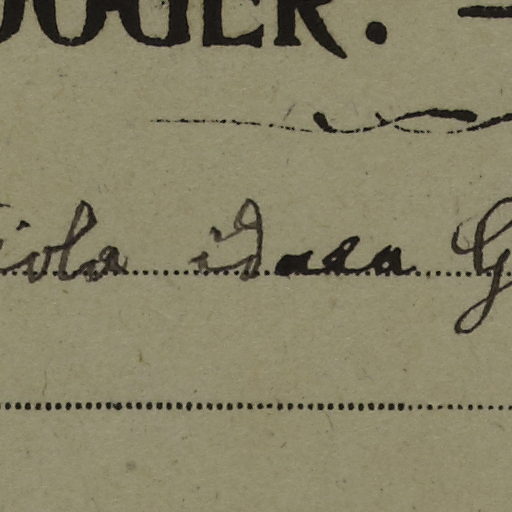 OOGER. —
iola idaea G